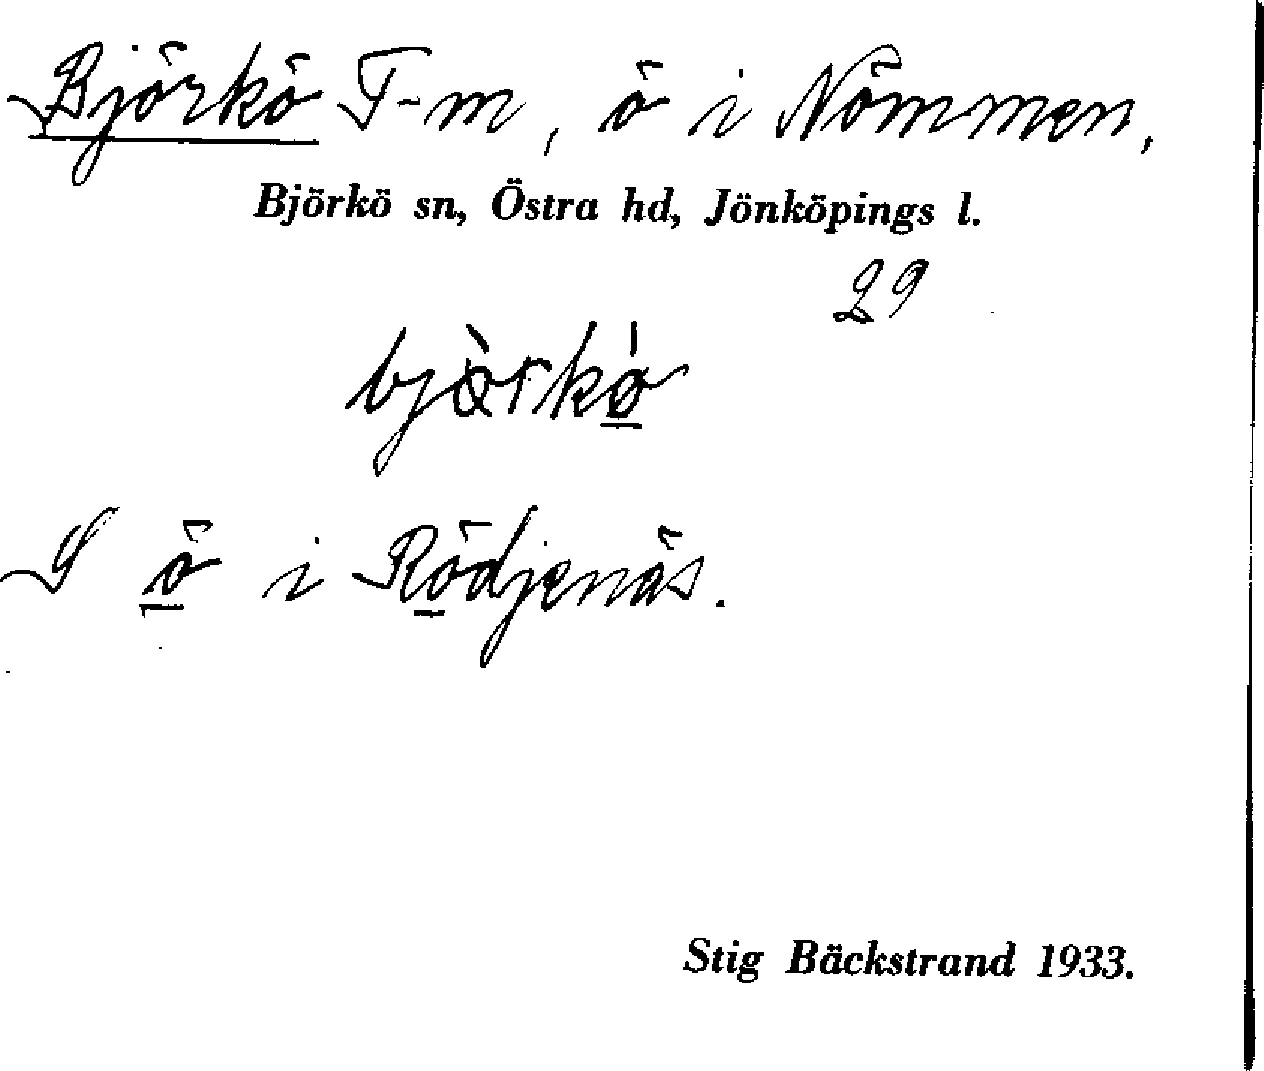 Björkö T-m, ö i Nömmen,
Björkö sn, Östra hd, Jönköpings l.
29
bjòrkó
I ö i Rödjenäs.
Stig Bäckstrand 1933.